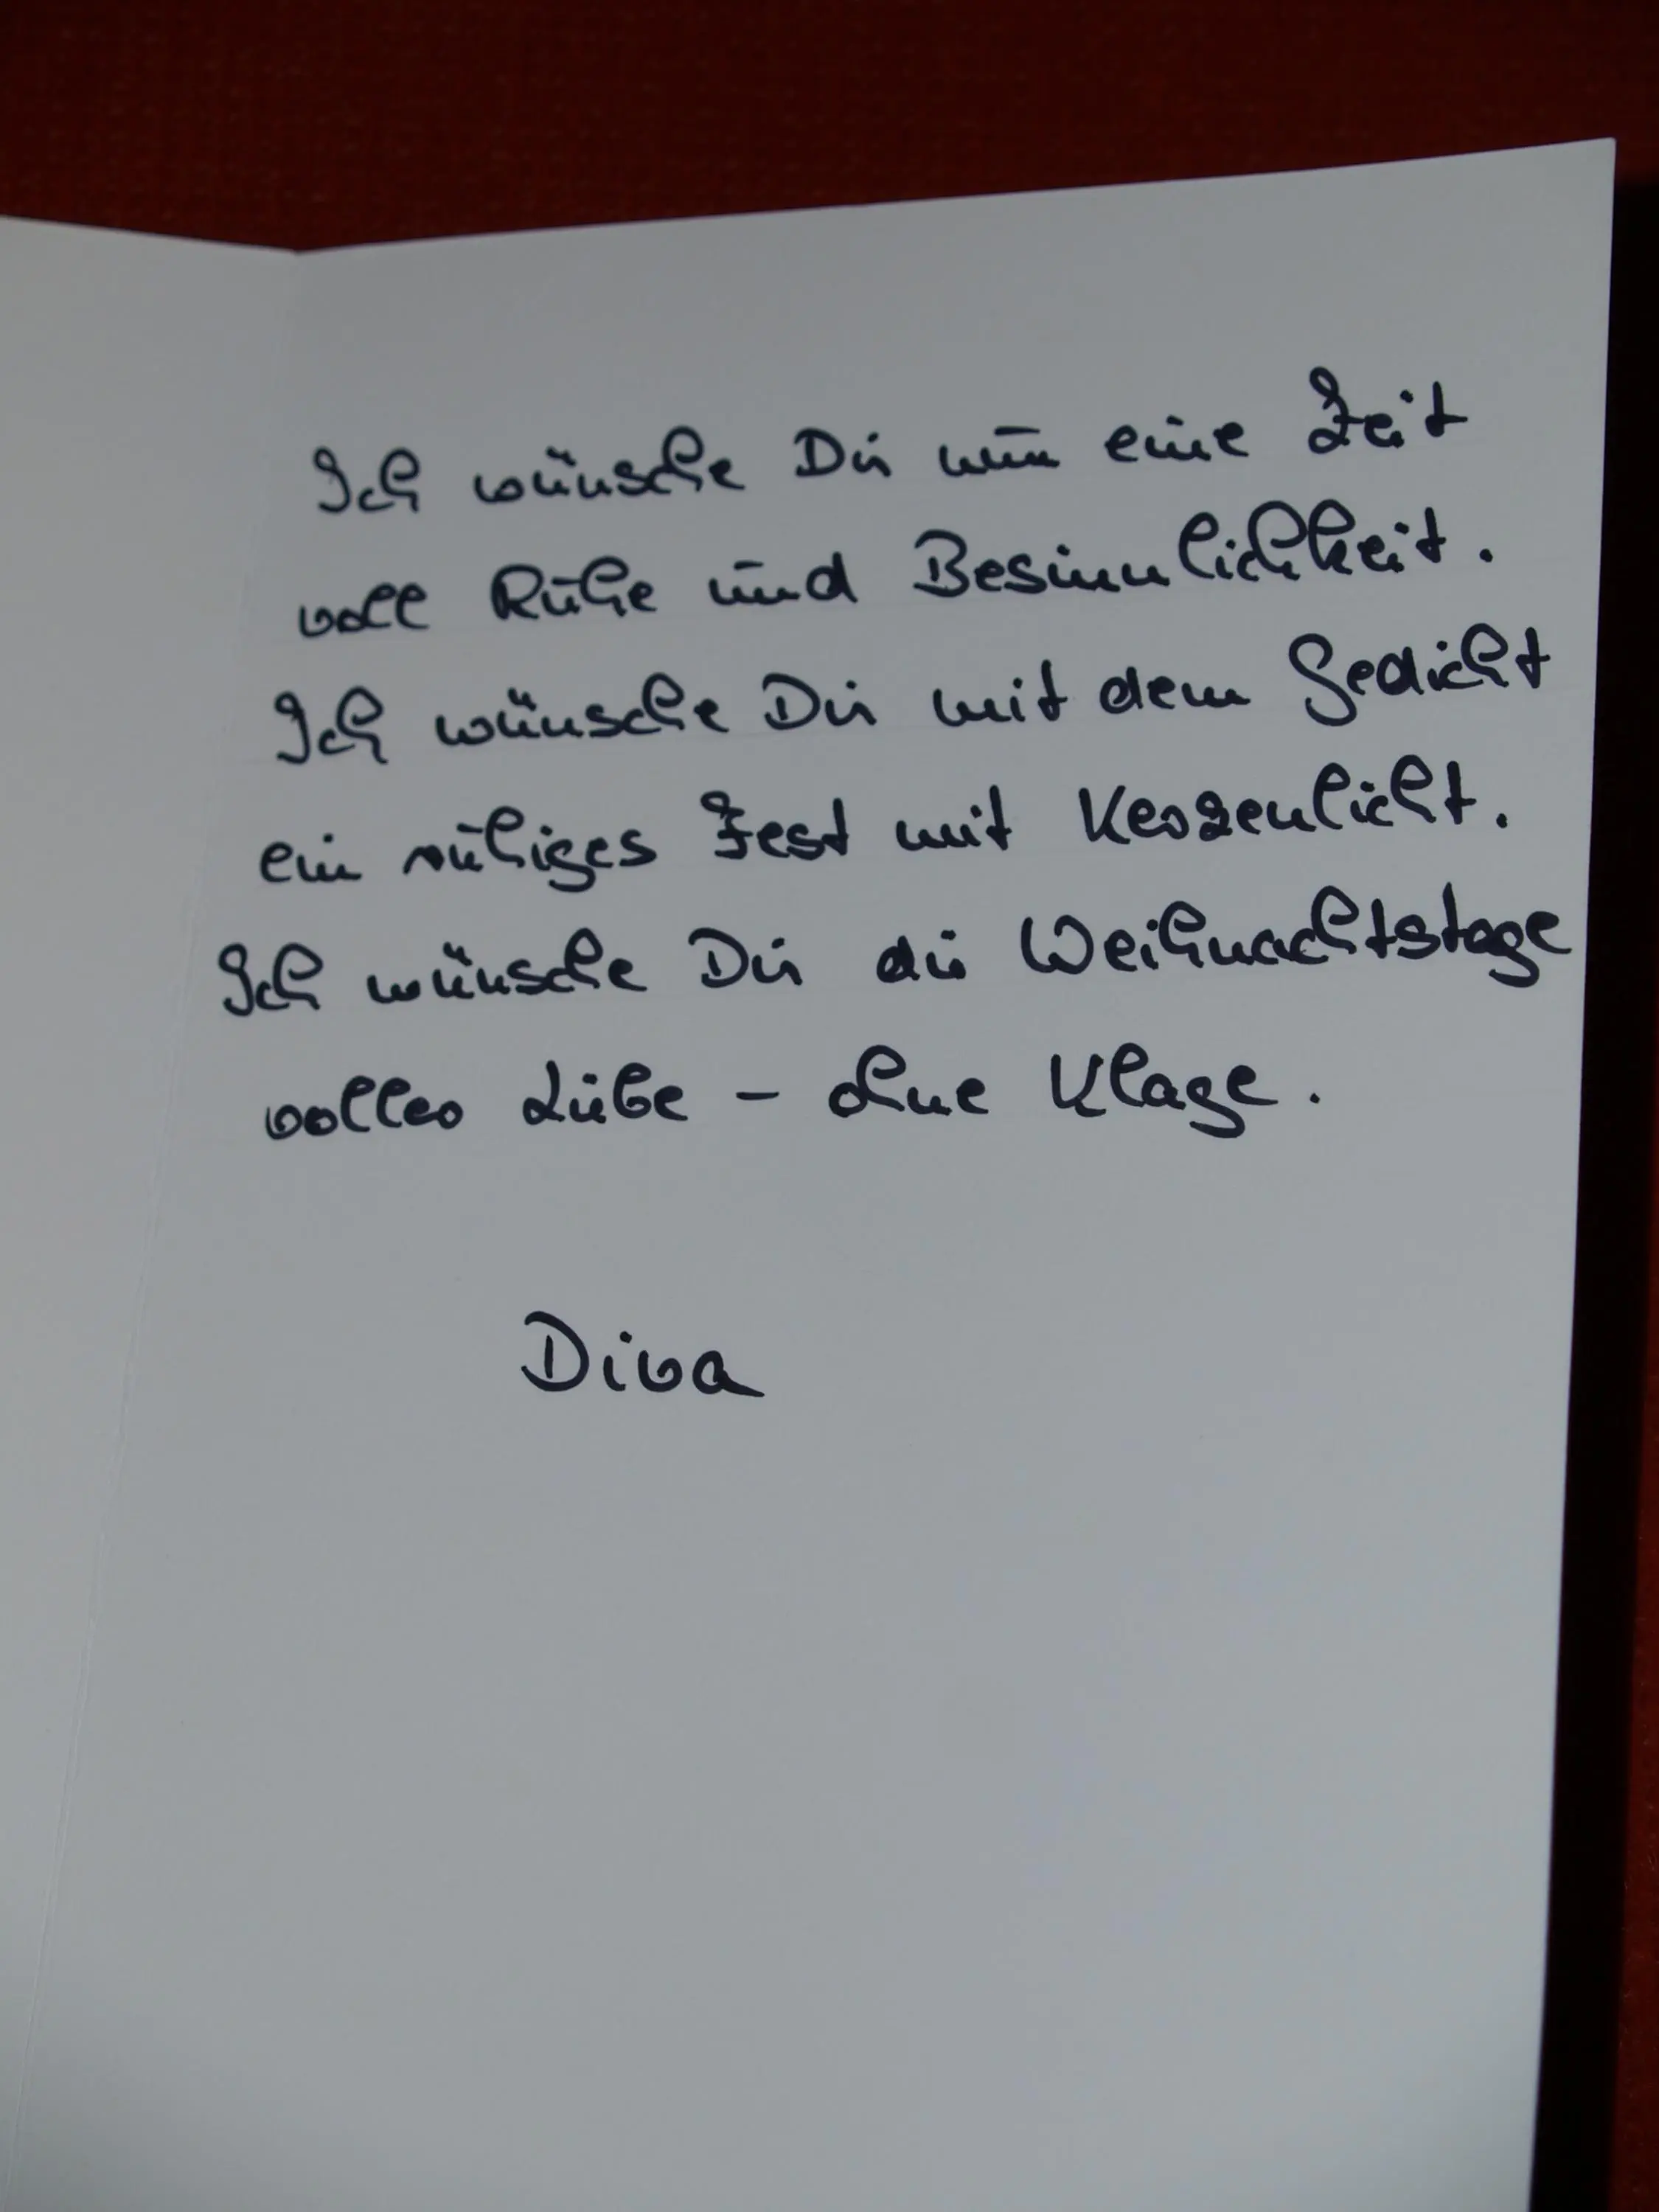 Ich wünsche Dir nun eine Zeit
voll Ruhe und Besinnlichkeit.
Ich wünsche Dir mit dem Gedicht
ein ruhiges Fest mit Kerzenlicht.
Ich wünsche Dir die Weihnachtstage
voller Liebe – ohne Klage.
Diva